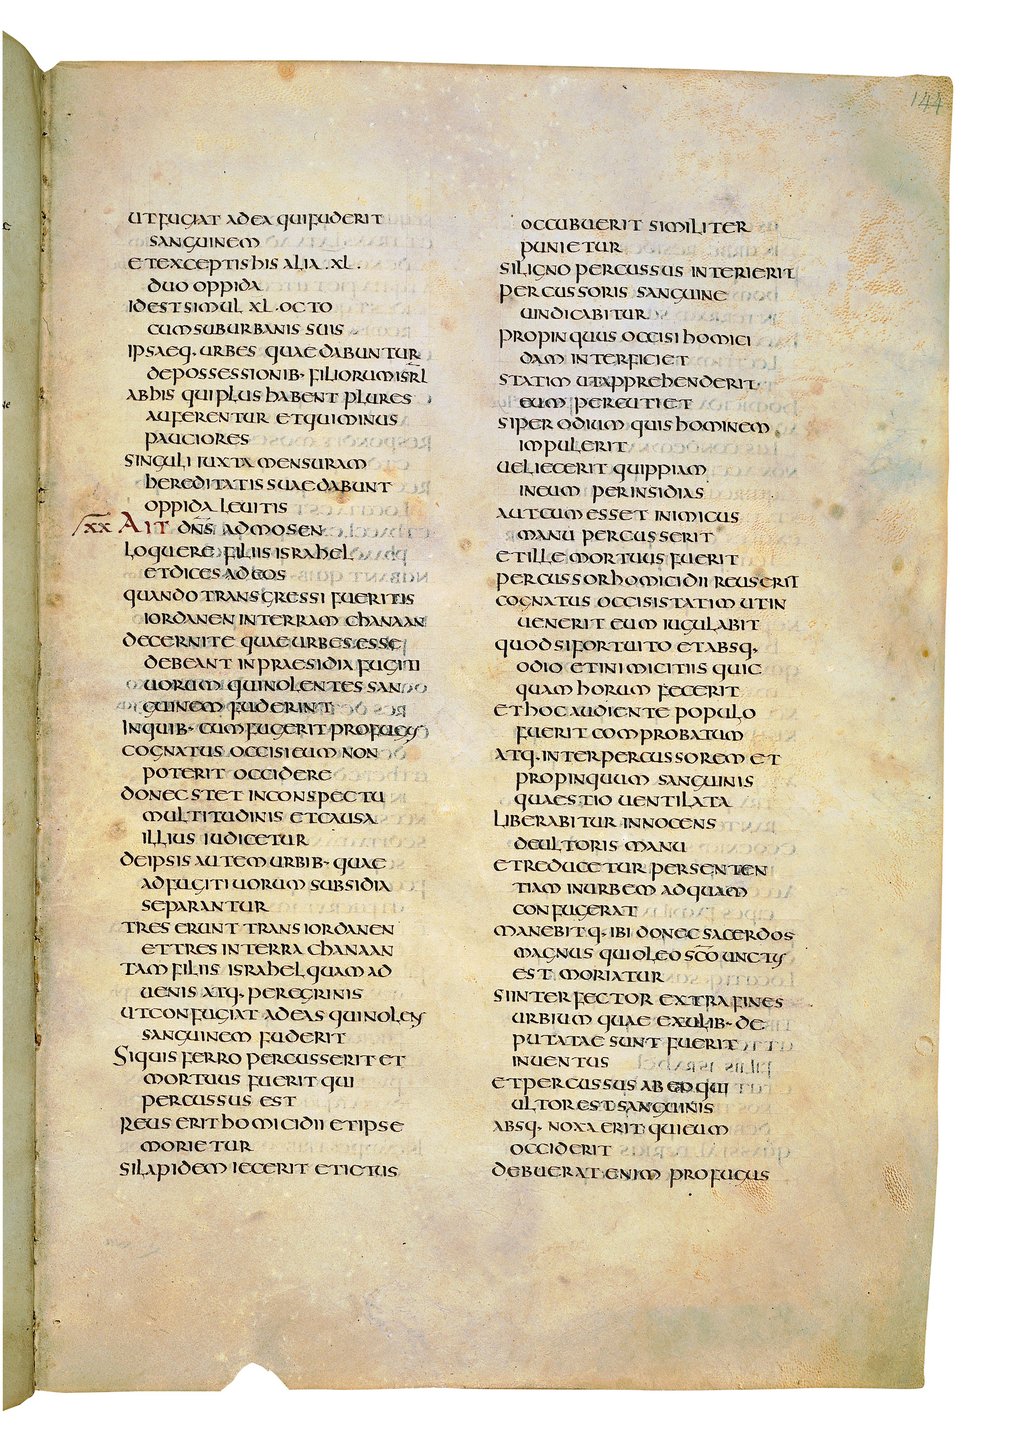 144
UT FUGIAT AD EA QUI FUDERIT
SANGUINEM
ET EXCEPTIS HIS ALIA · XL ·
DUO OPPIDA
ID EST SIMUL XL · OCTO
CUM SUBURBANIS SUIS
IPSAEQ· URBES QUAE DABUNTUR
DE POSSESSIONIB· FILIORUM ISRL
AB HIS QUI PLUS HABENT PLURES
AUFERENTUR ET QUI MINUS
PAUCIORES
SINGULI IUXTA MENSURAM
HEREDITATIS SUAE DABUNT
OPPIDA LEUITIS
XX AIT DNS AD MOSEN
LOQUERE FILIIS ISRAHEL
ET DICES AD EOS
QUANDO TRANSGRESSI FUERITIS
IORDANEN IN TERRAM CHANAAN
DECERNITE QUAE URBES ESSE
DEBEANT IN PRAESIDIA FUGITI
UORUM QUI NOLENTES SAN
GUINEM FUDERINT
IN QUIB· CUM FUGERIT PROFUGUS
COGNATUS OCCISI EUM NON
POTERIT OCCIDERE
DONEC STET IN CONSPECTU
MULTITUDINIS ET CAUSA
ILLIUS IUDICETUR
DE IPSIS AUTEM URBIB· QUAE
AD FUGITIUORUM SUBSIDIA
SEPARANTUR
TRES ERUNT TRANS IORDANEN
ET TRES IN TERRA CHANAAN
TAM FILIIS ISRAHEL QUAM AD
UENIS ATQ· PEREGRINIS
UT CONFUGIAT AD EAS QUI NOLENS
SANGUINEM FUDERIT
SI QUIS FERRO PERCUSSERIT ET
MORTUUS FUERIT QUI
PERCUSSUS EST
REUS ERIT HOMICIDII ET IPSE
MORIETUR
SI LAPIDEM IECERIT ET ICTUS
OCCUBUERIT SIMILITER
PUNIETUR
SI LIGNO PERCUSSUS INTERIERIT
PERCUSSORIS SANGUINE
UINDICABITUR
PROPINQUUS OCCISI HOMICI
DAM INTERFICIET
STATIM UT APPREHENDERIT
EUM PERCUTIET
SI PER ODIUM QUIS HOMINEM
IMPULERIT
UEL IECERIT QUIPPIAM
IN EUM PER INSIDIAS
AUT CUM ESSET INIMICUS
MANU PERCUSSERIT
ET ILLE MORTUUS FUERIT
PERCUSSOR HOMICIDII REUS ERIT
COGNATUS OCCISI STATIM UT IN
UENERIT EUM IUGULABIT
QUOD SI FORTUITO ET ABSQ·
ODIO ET INIMICITIIS QUIC
QUAM HORUM FECERIT
ET HOC AUDIENTE POPULO
FUERIT COMPROBATUM
ATQ· INTER PERCUSSOREM ET
PROPINQUUM SANGUINIS
QUAESTIO UENTILATA
LIBERABITUR INNOCENS
DE ULTORIS MANU
ET REDUCETUR PER SENTEN
TIAM IN URBEM AD QUAM
CONFUGERAT
MANEBITQ· IBI DONEC SACERDOS
MAGNUS QUI OLEO SCO UNCTUS
EST MORIATUR
SI INTERFECTOR EXTRA FINES
URBIUM QUAE EXULIB· DE
PUTATAE SUNT FUERIT
INUENTUS
ET PERCUSSUS AB EO QUI
ULTOR EST SANGUINIS
ABSQ· NOXA ERIT QUI EUM
OCCIDERIT
DEBUERAT ENIM PROFUGUS